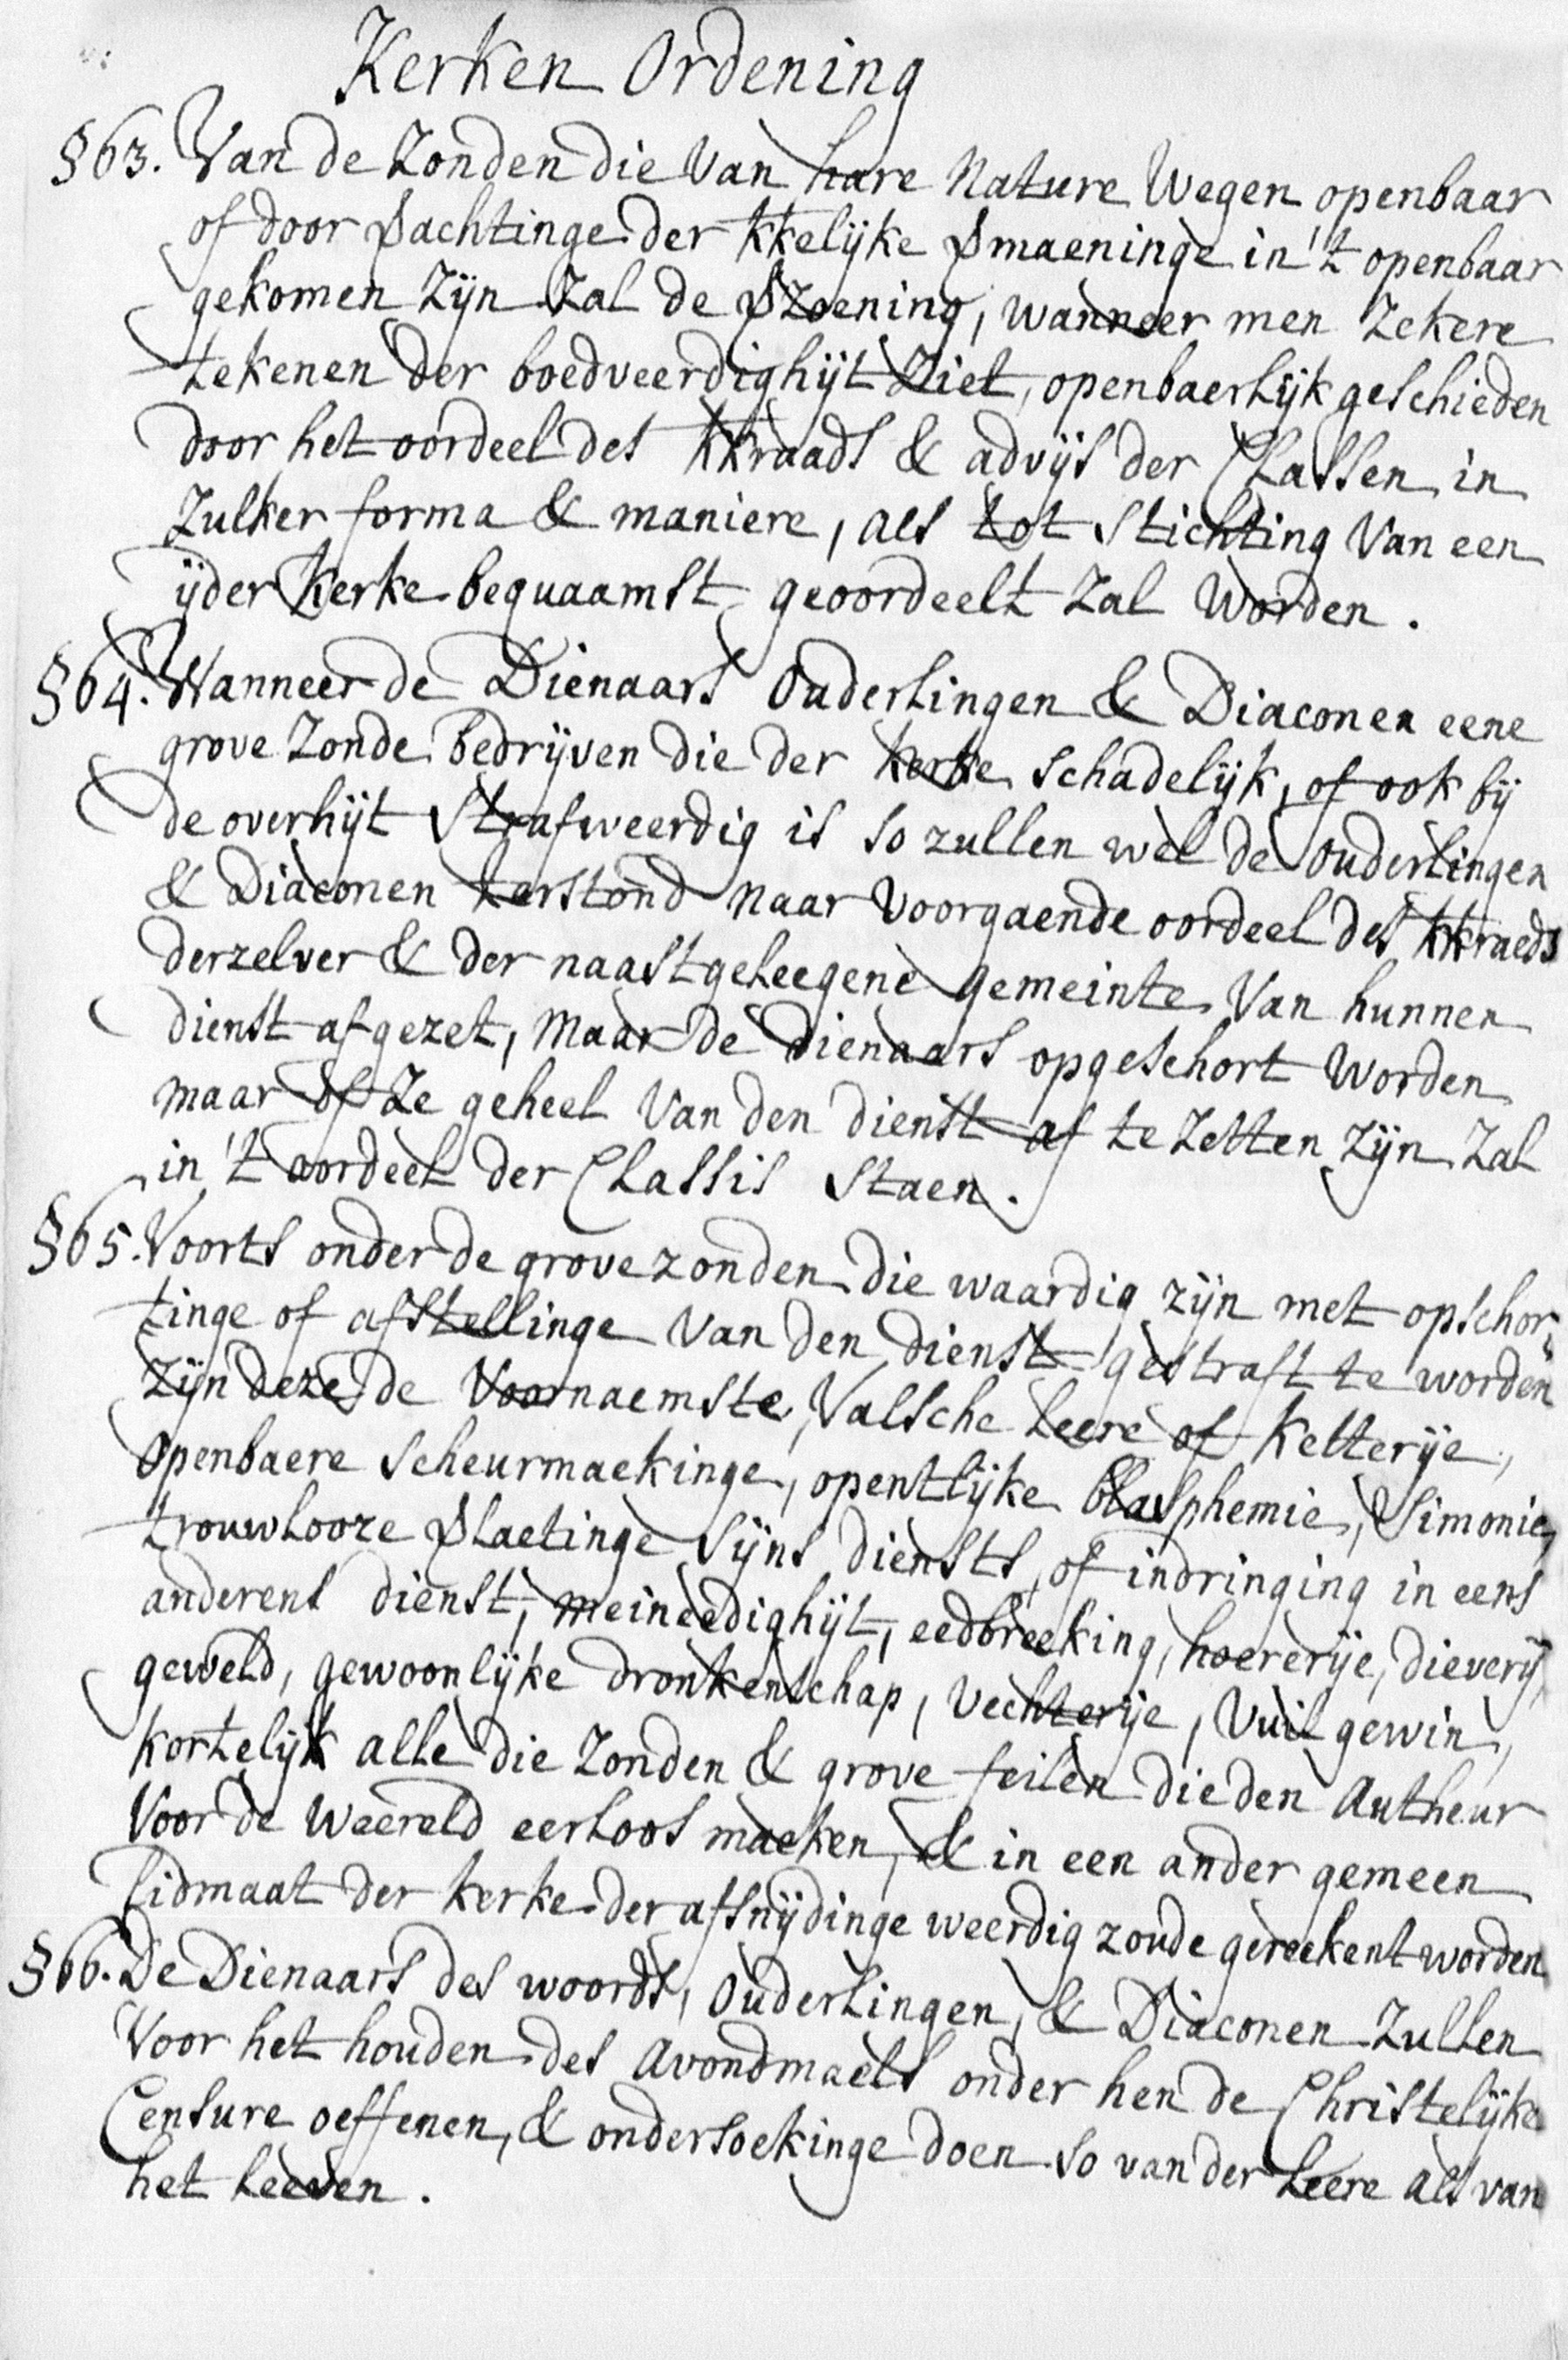 Kerken Ordening
§63. Van de Zonden die Van hare Nature Wegen openbaar
of door Pachtinge der kkelijke Pmaeninge in 't openbaar
gekomen Zijn Zal de Pzoening, wanneer men Zekere
tekenen der boedveerdighijt Ziet, openbaerlijk geschieden
door het oordeel des kkraads & advijs der Classen in
Zulker forma & maniere, als tot Stichting Van een
ijder Kerke bequaamst geoordeelt Zal Worden.
§64. Wanneer de Dienaars Ouderlingen & Diaconen eene
grove Zonde bedrijven die der kerke schadelijk, of ook bij
de overhijt Strafweerdig is so zullen wel de Ouderlingen
& Diaconen terstond naar Voorgaende oordeel des kkraeds
derzelver & der naastgeleegene gemeinte Van hunnen
dienst afgezet, Maar de dienaars opgeschort Worden
maar of Ze geheel Van den dienst af te Zetten Zijn Zal
in 't oordeel der Classis Staen.
§65. Voorts onder de grove zonden die waardig zijn met opschor„
tinge of afstellinge Van den dienst gestraft te worden
Zijn deze de Voornaemste, Valsche Leere of Ketterije,
Openbaere Scheurmaekinge, opentlijke blasphemie, Simonie,
trouwlooze Plaetinge Sijns diensts, of indringing in eens
anderens dienst, meineedighijt, eedbreeking, hoererije, dieverij,
geweld, gewoonlijke dronkenschap, Vechterije, Vuil gewin,
kortelijk alle die Zonden & grove feilen die den Autheur
Voor de Weereld eerloos maeken, & in een ander gemeen
Lidmaat der Kerke der afsnijdinge weerdig zoude gereekent worden
§66. De Dienaars des woords, Ouderlingen, & Diaconen Zullen
Voor het houden des Avondmaels onder hen de Christelijke
Censure oeffenen, & ondersoekinge doen so van der Leere als van
het Leeven.